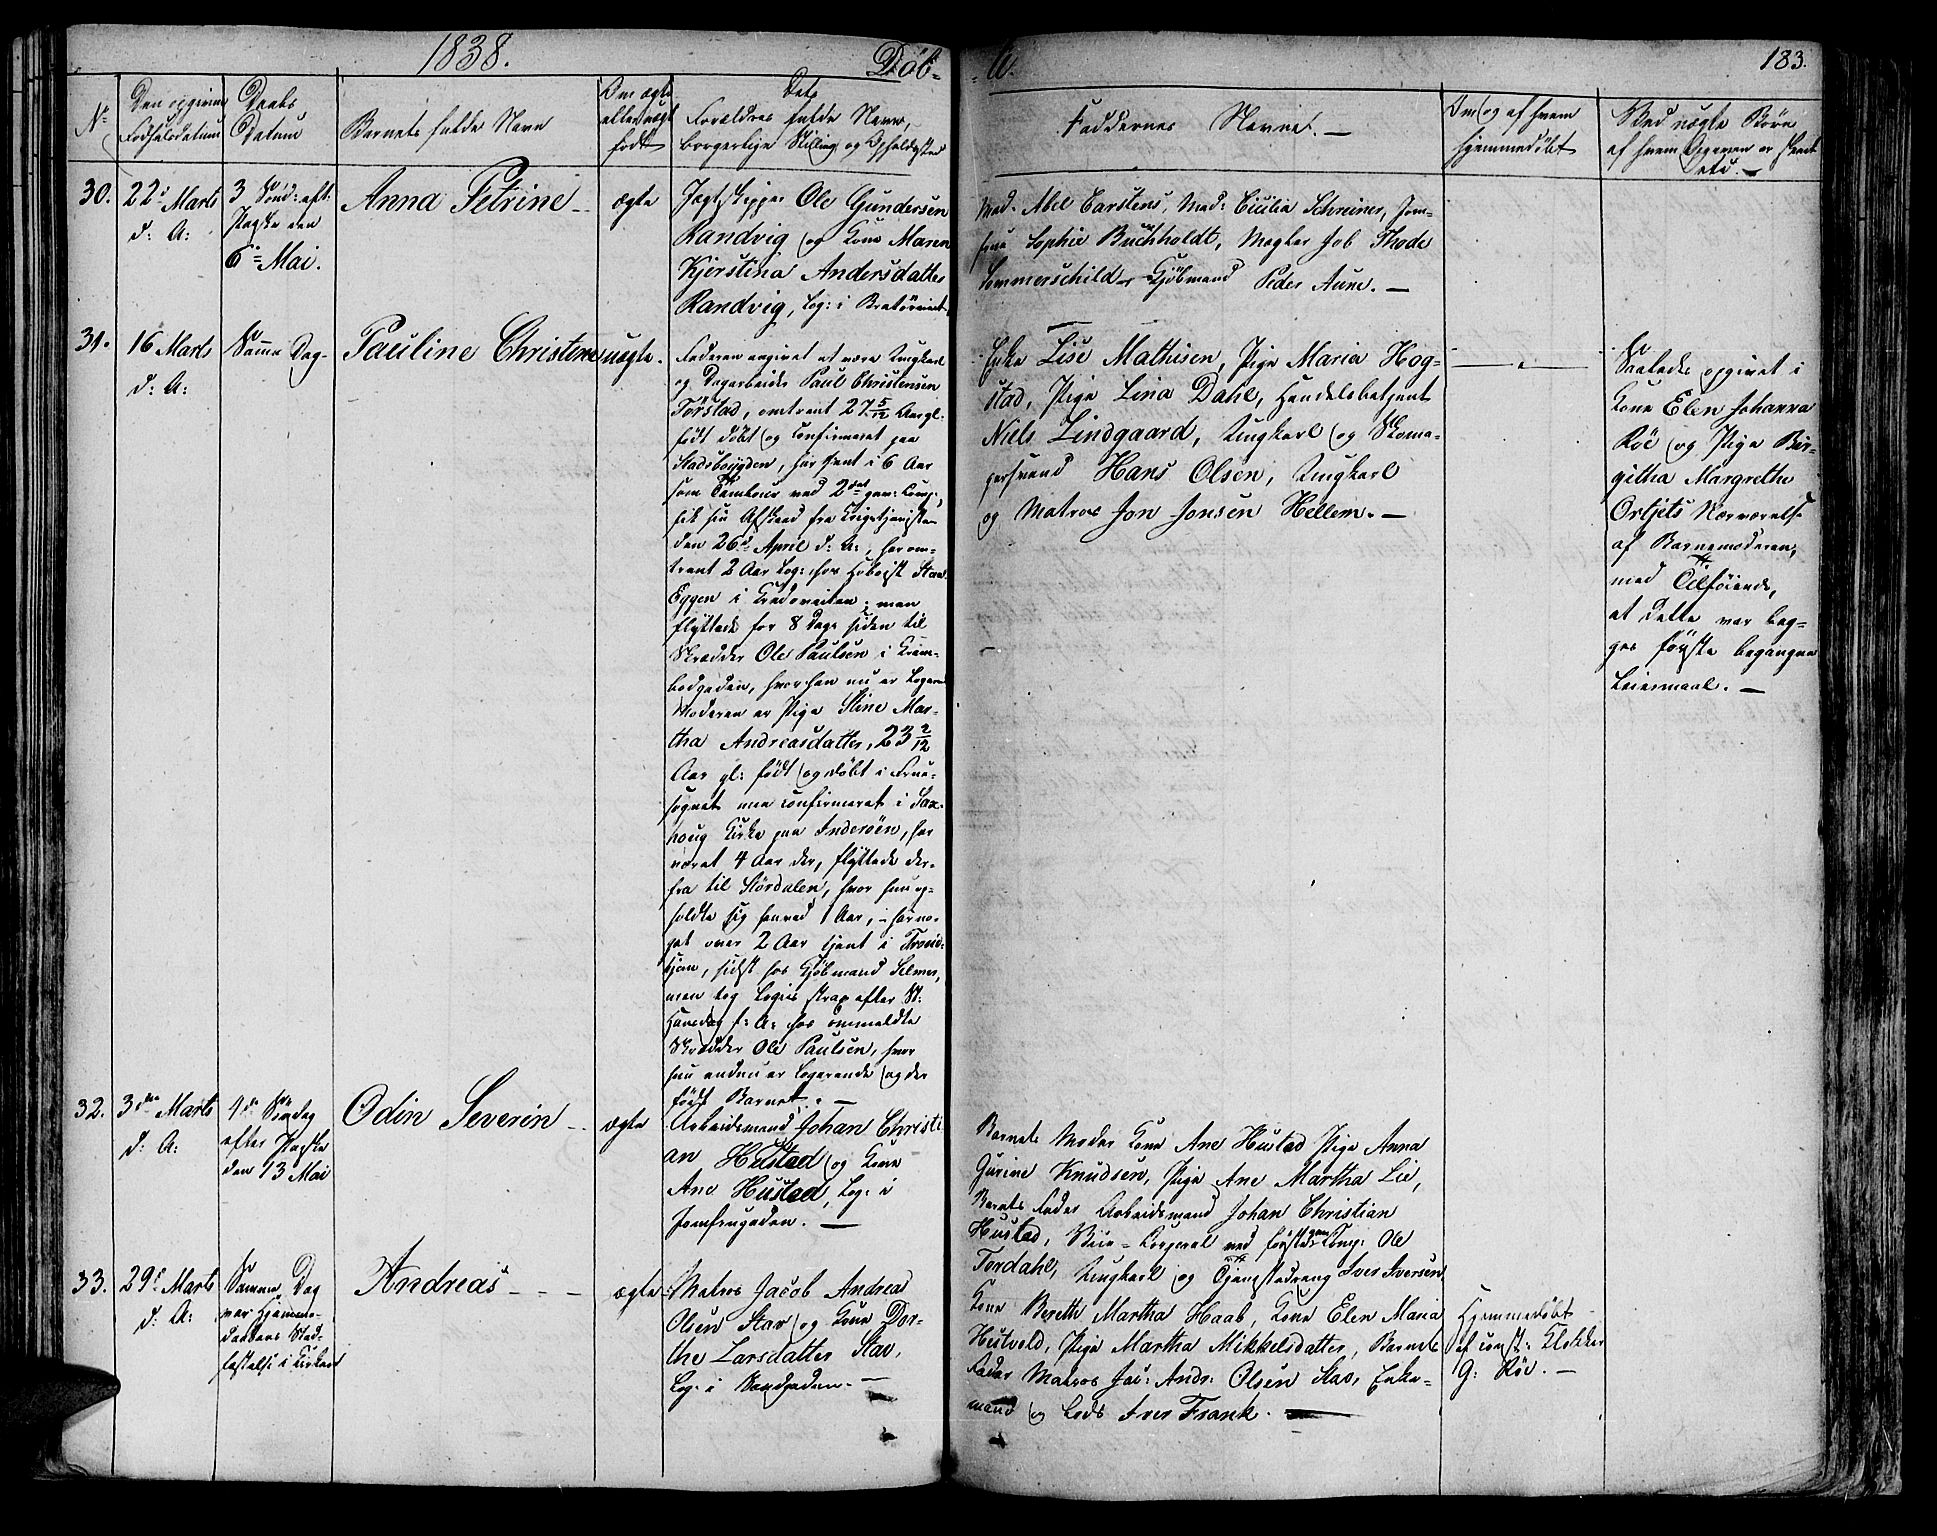 1838.
Døb-
te.
183.
No
Den opgivne
Fødselsdatum
Daabs
Datum
Barnets fulde Navn
Om ægte
eller uægte
født
Dets
Forældres fulde Navne,
borgerlige Stilling og Opholdssted
Faddernes Navne. —
Om og af hvem
hjemmedøbt
Ved uægte Børn
af hvem Opgaven er skeet
30.
22de Marts
d: A:
3 Sønd: eft:
Paaske den
6= Mai.
Anna Petrine
ægte
Jagtskipper Ole Gundersen
Randvig og Kone Maren
Kjerstina Andersdatter
Randvig, Log: i Bratørveit
Mad. Abel Carstens, Mad: Cicilia Schreiner, Jom-
frue Sophie Buchholdt, Mægler Job Thode
Sommerschild og Kjøbmand Peder Aune. —
31.
16 Marts
d: A:
Samme Dag
Pauline Christine
uægte.
Faderen angivet at være Ungkarl
og Dagarbeider Paul Christensen
Tørstad, omtrent 27 5/12 Aar gl:
født døbt og confirmeret paa
Stadsboigden, har tjent i 6 Aar
som Tambour ved 2det gev: Comp:,
fik sin Afsked fra Krigstjenesten
den 26d April d: A:, har om-
trent 2 Aar Log: hos Hoboist
Eggen i Credoveiten, men
flyttede for 8 Dage siden til
Skrædder Ole Paulsen i Kram-
bodgaden, hvor han nu er Logerende
Moderen er Pige Stine Mar-
tha Andreasdatter, 23 2/12
Aar gl: født og døbt i Frue-
sognet men confirmeret i Sax-
houg Kirke paa Inderøen, har
været 4 Aar der, flyttede der-
fra til Størdalen, hvor hun op-
holdte sig henved 1 Aar, har no-
get over 2 Aar tjent i Trond-
hjem, sidst hos Kjøbmand Selmer,
men tog Logis strax efter St:
Hansdag f: A: hos ommeldte
Skrædder Ole Paulsen, hvor
hun endnu er Logerende og der
født Barnet. —
Enke Lise Mathisen, Pige Maria Hog-
stad, Pige Lina Dahl, Handelsbetjent
Niels Lindgaard, Ungkarl og Skoma-
gersvend Hans Olsen, Ungkarl
og Matros Jon Jonsen Hellem. —
Saaledes opgivet i
Kone Elen Johanna
Röe og Pige Bir-
githa Margrethe
Nærværelse
af Barnemoderen,
med Tilføiende,
at dette var beg-
ges første begangne
Leiermaal. —
32.
3die Marts
d: A:
4de Søndag
efter Paaske
den 13 Mai
Odin Severin
ægte
Arbeidsmand Johan Christi
an Hustad og Kone
Ane Hustad, Log: i
Jomfrugaden. —
Barnets Moder Kone Ane Hustad Pige Anna
Gurine Knudsen, Pige Ane Martha Lie,
Barnets Fader Arbeidsmand Johan Christian
Hustad, Vice-Corporal ved første gev: Comp: Ole
Tordahl, Ungkarl og Tjenestedreng Iver Iversen
33.
29de Marts
d: A:
Samme Dag
var Hjemme-
daabens Stad-
festelse i Kirken
Andreas
ægte
Matros Jacob Andreas
Olsen Stav og Kone Dor-
the Larsdatter Stav,
Log: i Sandgaden. —
Kone Bereth Martha Haab, Kone Elen Maria
Hestvold, Pige Martha Mikkelsdatter, Barnets
Fader Matros Jac: Andr: Olsen Stav, Enke-
mand og Lods Iver Frank. —
Hjemmedøbt
af const: Klokker
G: Röe. —